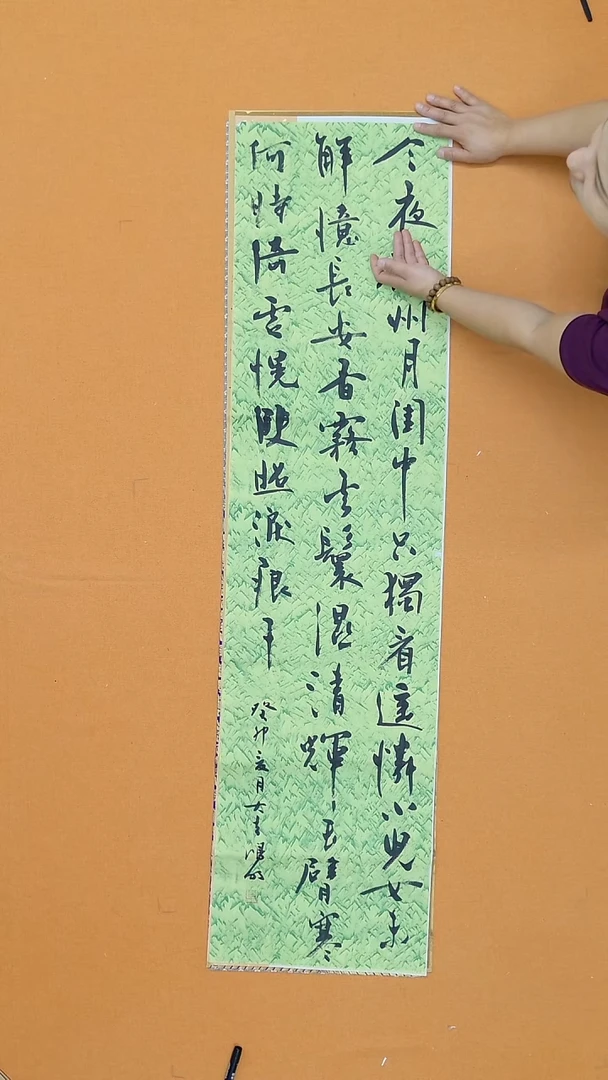 今夜州月閨中只獨看遥憐小兒女未
解憶長安香霧云鬟濕清輝玉臂寒
何時倚虛幌雙照淚痕干
癸卯夏月